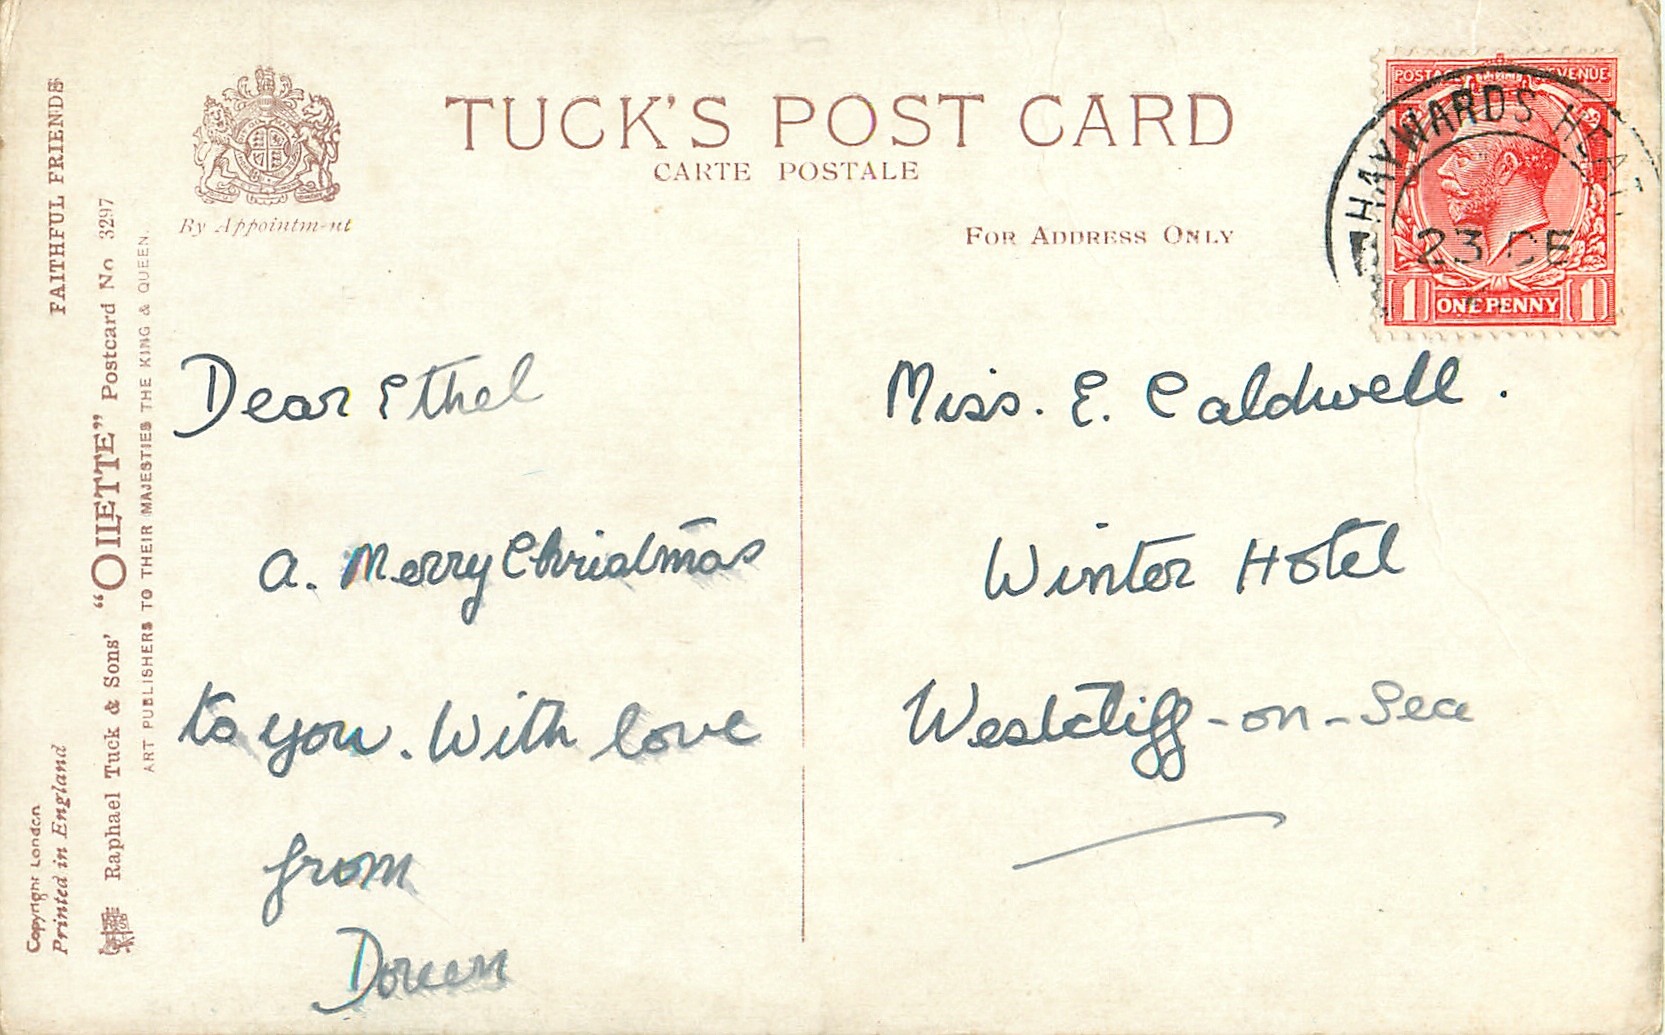 TUCK'S POST CARD
CARTE POSTALE
By Appointment
FOR ADDRESS ONLY
POSTAGE REVENUE
ONE PENNY
1 1
HAYWARDS HEATH
23 DE
FAITHFUL FRIENDS
Raphael Tuck & Sons' "OILETTE" Postcard No 3297
ART PUBLISHERS TO THEIR MAJESTIES THE KING & QUEEN.
Copyright London
Printed in England
Dear Ethel
a. Merry Christmas
to you. With love
from
Doreen
Miss. E. Caldwell.
Winter Hotel
Westcliff-on-Sea